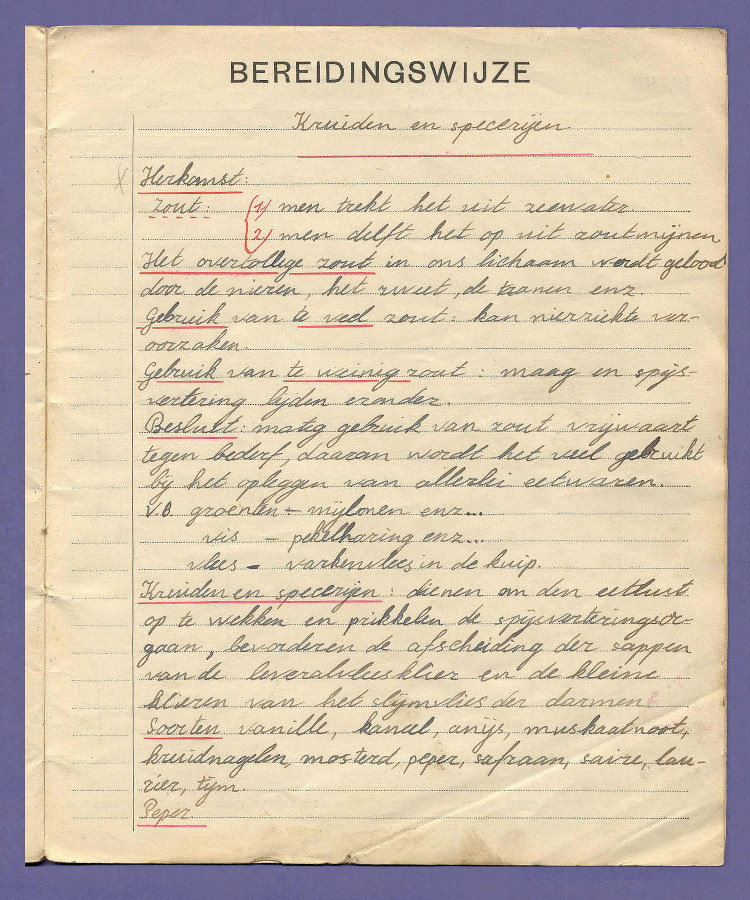 BEREIDINGSWIJZE
Kruiden en specerijen
Herkomst:
Zout: 1/ men trekt het uit zeewater.
2/ men delft het op uit zoutmijnen
Het overtollige zout in ons lichaam wordt gelood
door de nieren, het zweet, de tranen enz.
Gebruik van te veel zout: kan nierziekte ver-
oorzaken.
Gebruik van te weinig zout: maag en spijs-
vertering lijden eronder.
Besluit: matig gebruik van zout vrijwaart
tegen bederf, daarom wordt het veel gebruikt
bij het opleggen van allerlei eetwaren.
v.b groenten - mijlonen enz...
vis - pekelharing enz...
vlees - varkenvlees in de kuip.
Kruiden en specerijen: dienen om den eetlust
op te wekken en prikkelen de spijsverteringsor-
gaan, bevorderen de afscheiding der sappen
van de klier en de kleine
klieren van het slijmvlies der darmen
Soorten vanille, kaneel, anijs, muskaatnoot,
kruidnagelen, mosterd, peper, safraan, lau-
rier, tijm.
Peper